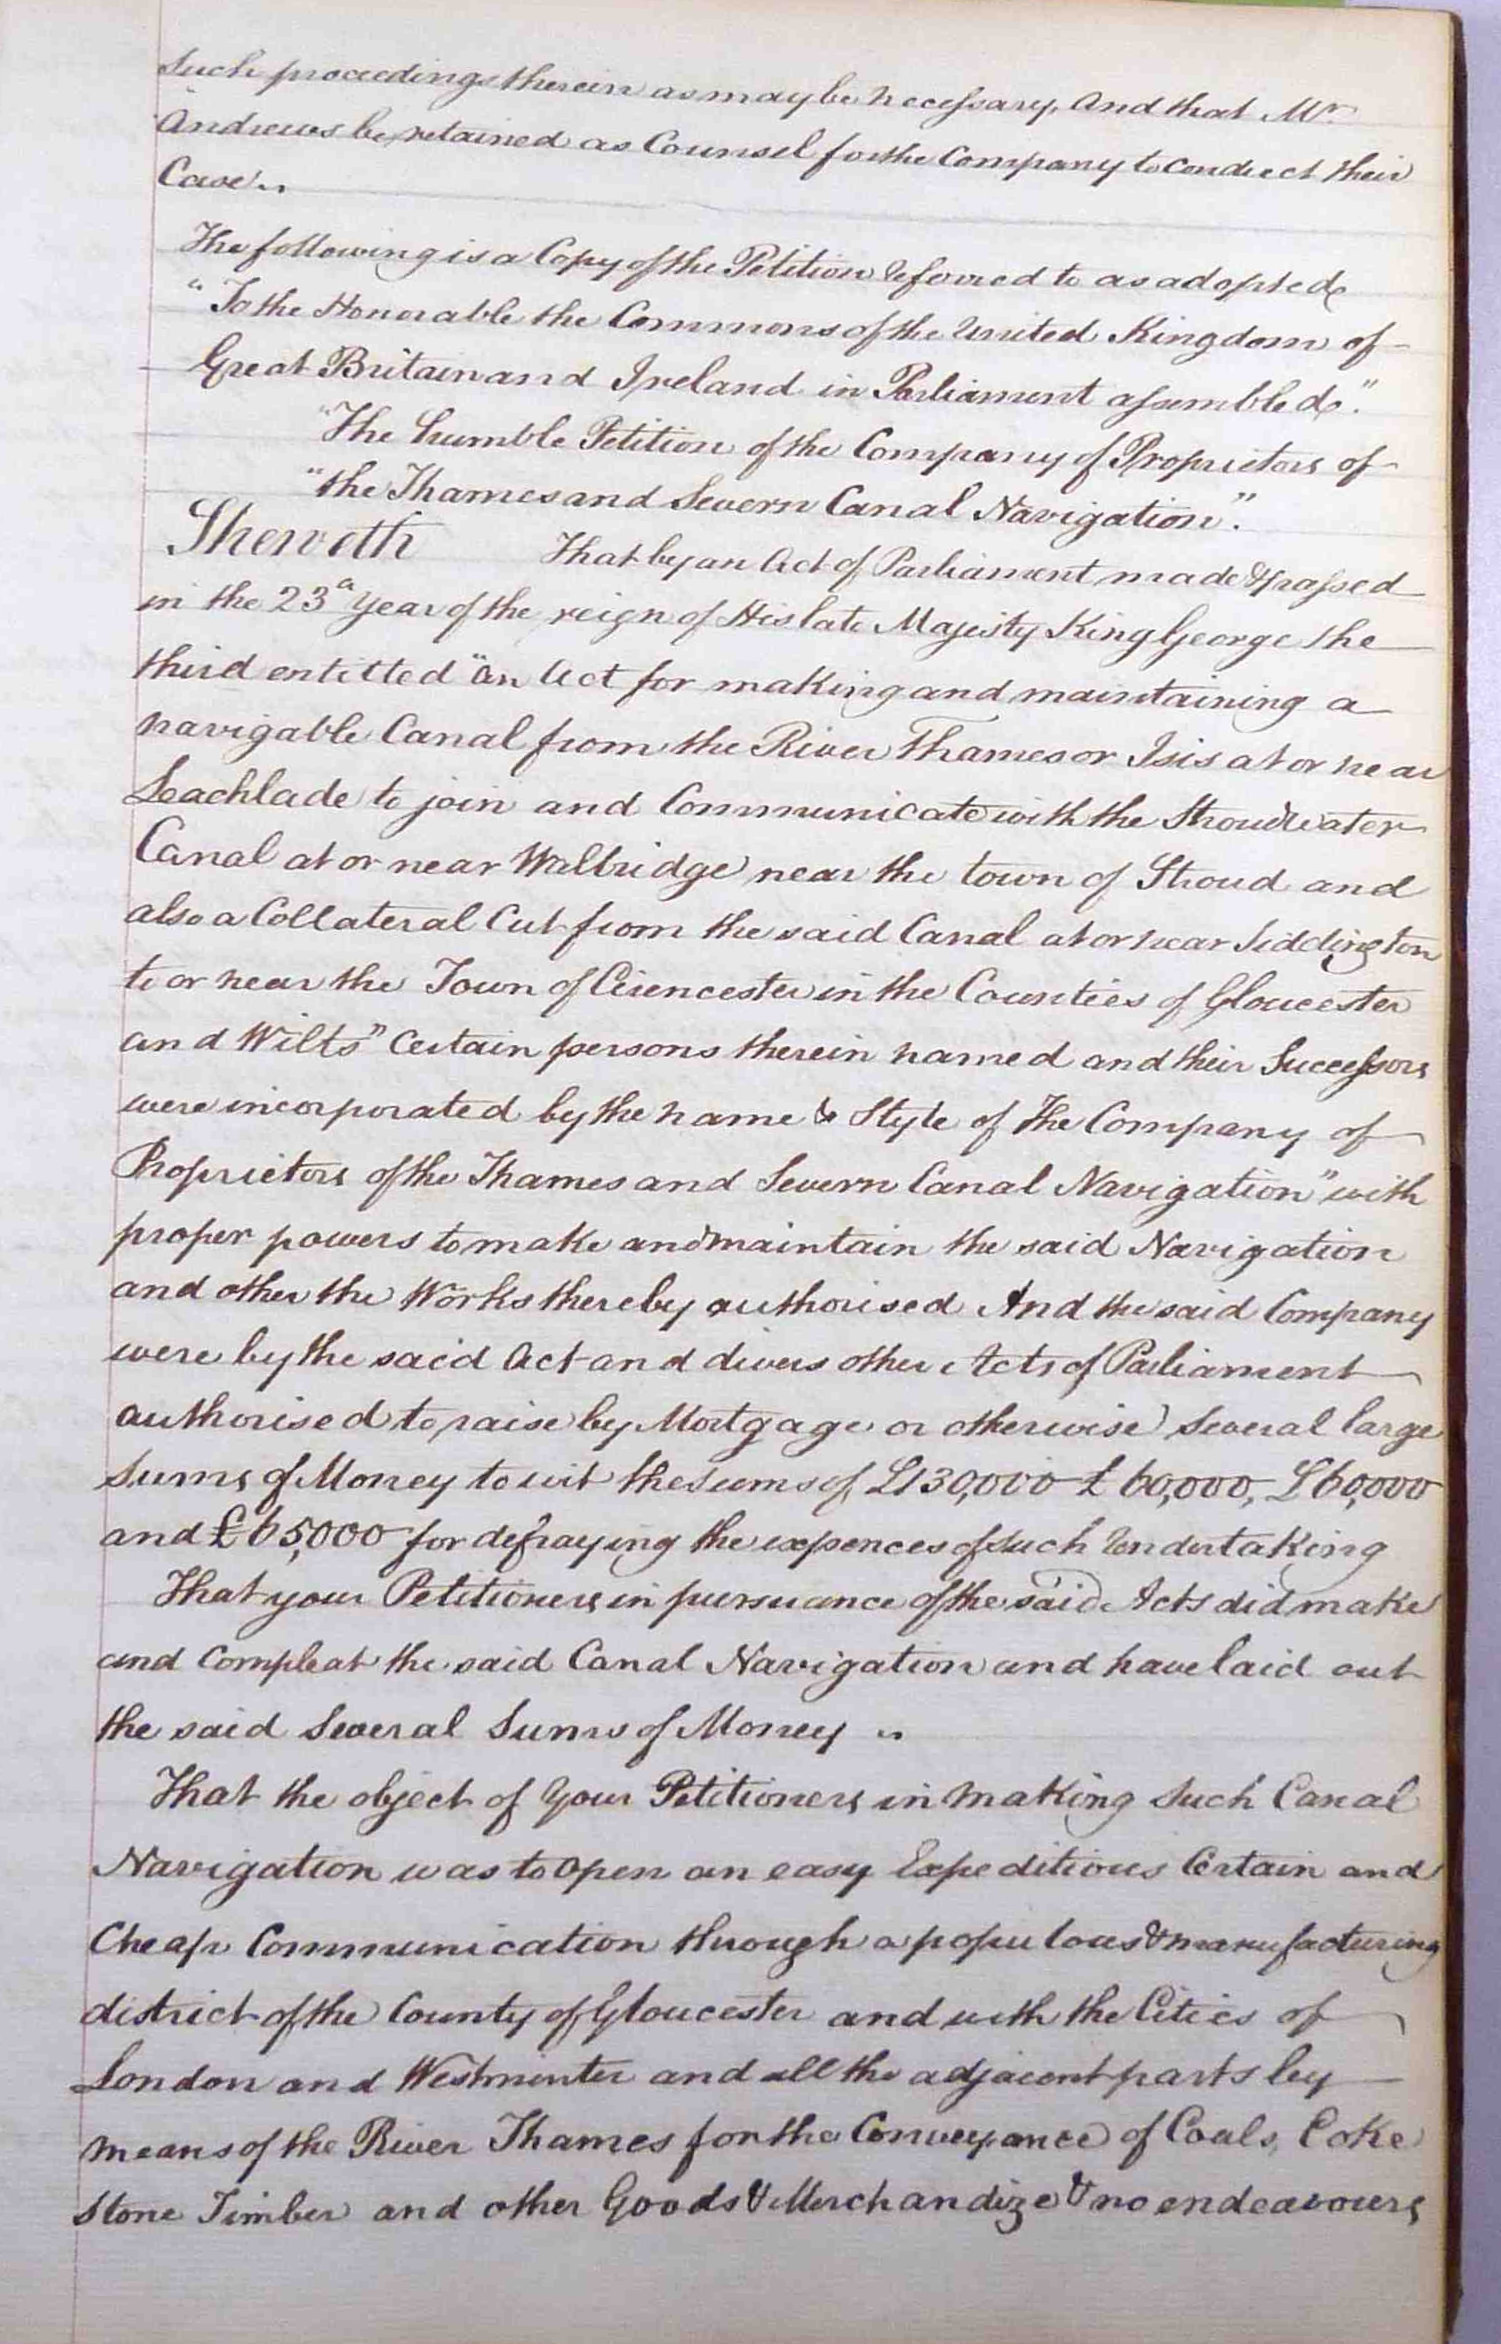 such proceedings therein as may be necessary, and that Mr.
Andrews be retained as Counsel for the Company to conduct their
Case..
The following is a Copy of the Petition referred to as adopted
"To the Honorable the Commons of the United Kingdom of
Great Britain and Ireland in Parliament assembled".
"The humble Petition of the Company of Proprietors of
"the Thames and Severn Canal Navigation".
Sheweth That by an Act of Parliament made & passed
in the 23d year of the reign of His late Majesty King George the
third entitled "an Act for making and maintaining a
navigable Canal from the River Thames or Isis at or near
Leachlade to join and Communicate with the Stroudwater
Canal at or near Walbridge near the town of Stroud and
also a Collateral Cut from the said Canal at or near Siddington
to or near the Town of Cirencester in the Counties of Gloucester
and Wilts" Certain persons therein named and their Successors
were incorporated by the name & Style of The Company of
Proprietors of the Thames and Severn Canal Navigation" with
proper powers to make and maintain the said Navigation
and other the Works thereby authorised And the said Company
were by the said Act and divers other Acts of Parliament
authorised to raise by Mortgage or otherwise several large
Sums of Money to wit the sums of £130,000 £60,000, £60,000
and £65,000 for defraying the expences of such Undertaking
That your Petitioners in pursuance of the said Acts did make
and Compleat the said Canal Navigation and have laid out
the said Several Sums of Money ..
That the object of Your Petitioners in making such Canal
Navigation was to open an easy Expeditious Certain and
Cheap Communication through a populous & manufacturing
district of the County of Gloucester and with the Cities of
London and Westminter and all the adjacent parts by
means of the River Thames for the Conveyance of Coals, Coke
Stone Timber and other Goods & Merchandize & no endeavours